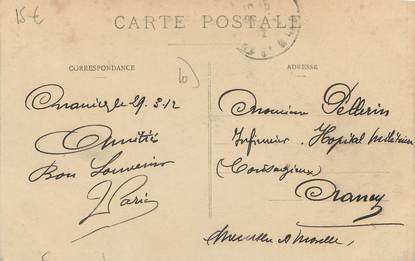 15€
CARTE POSTALE
CORRESPONDANCE
ADRESSE
10
le 29.3.12
Amitié
Bon Souvenir
Monsieur Pellerin
Infirmier. Hopital Militaire
(Contagieux)
Nancy
Meurthe et Moselle